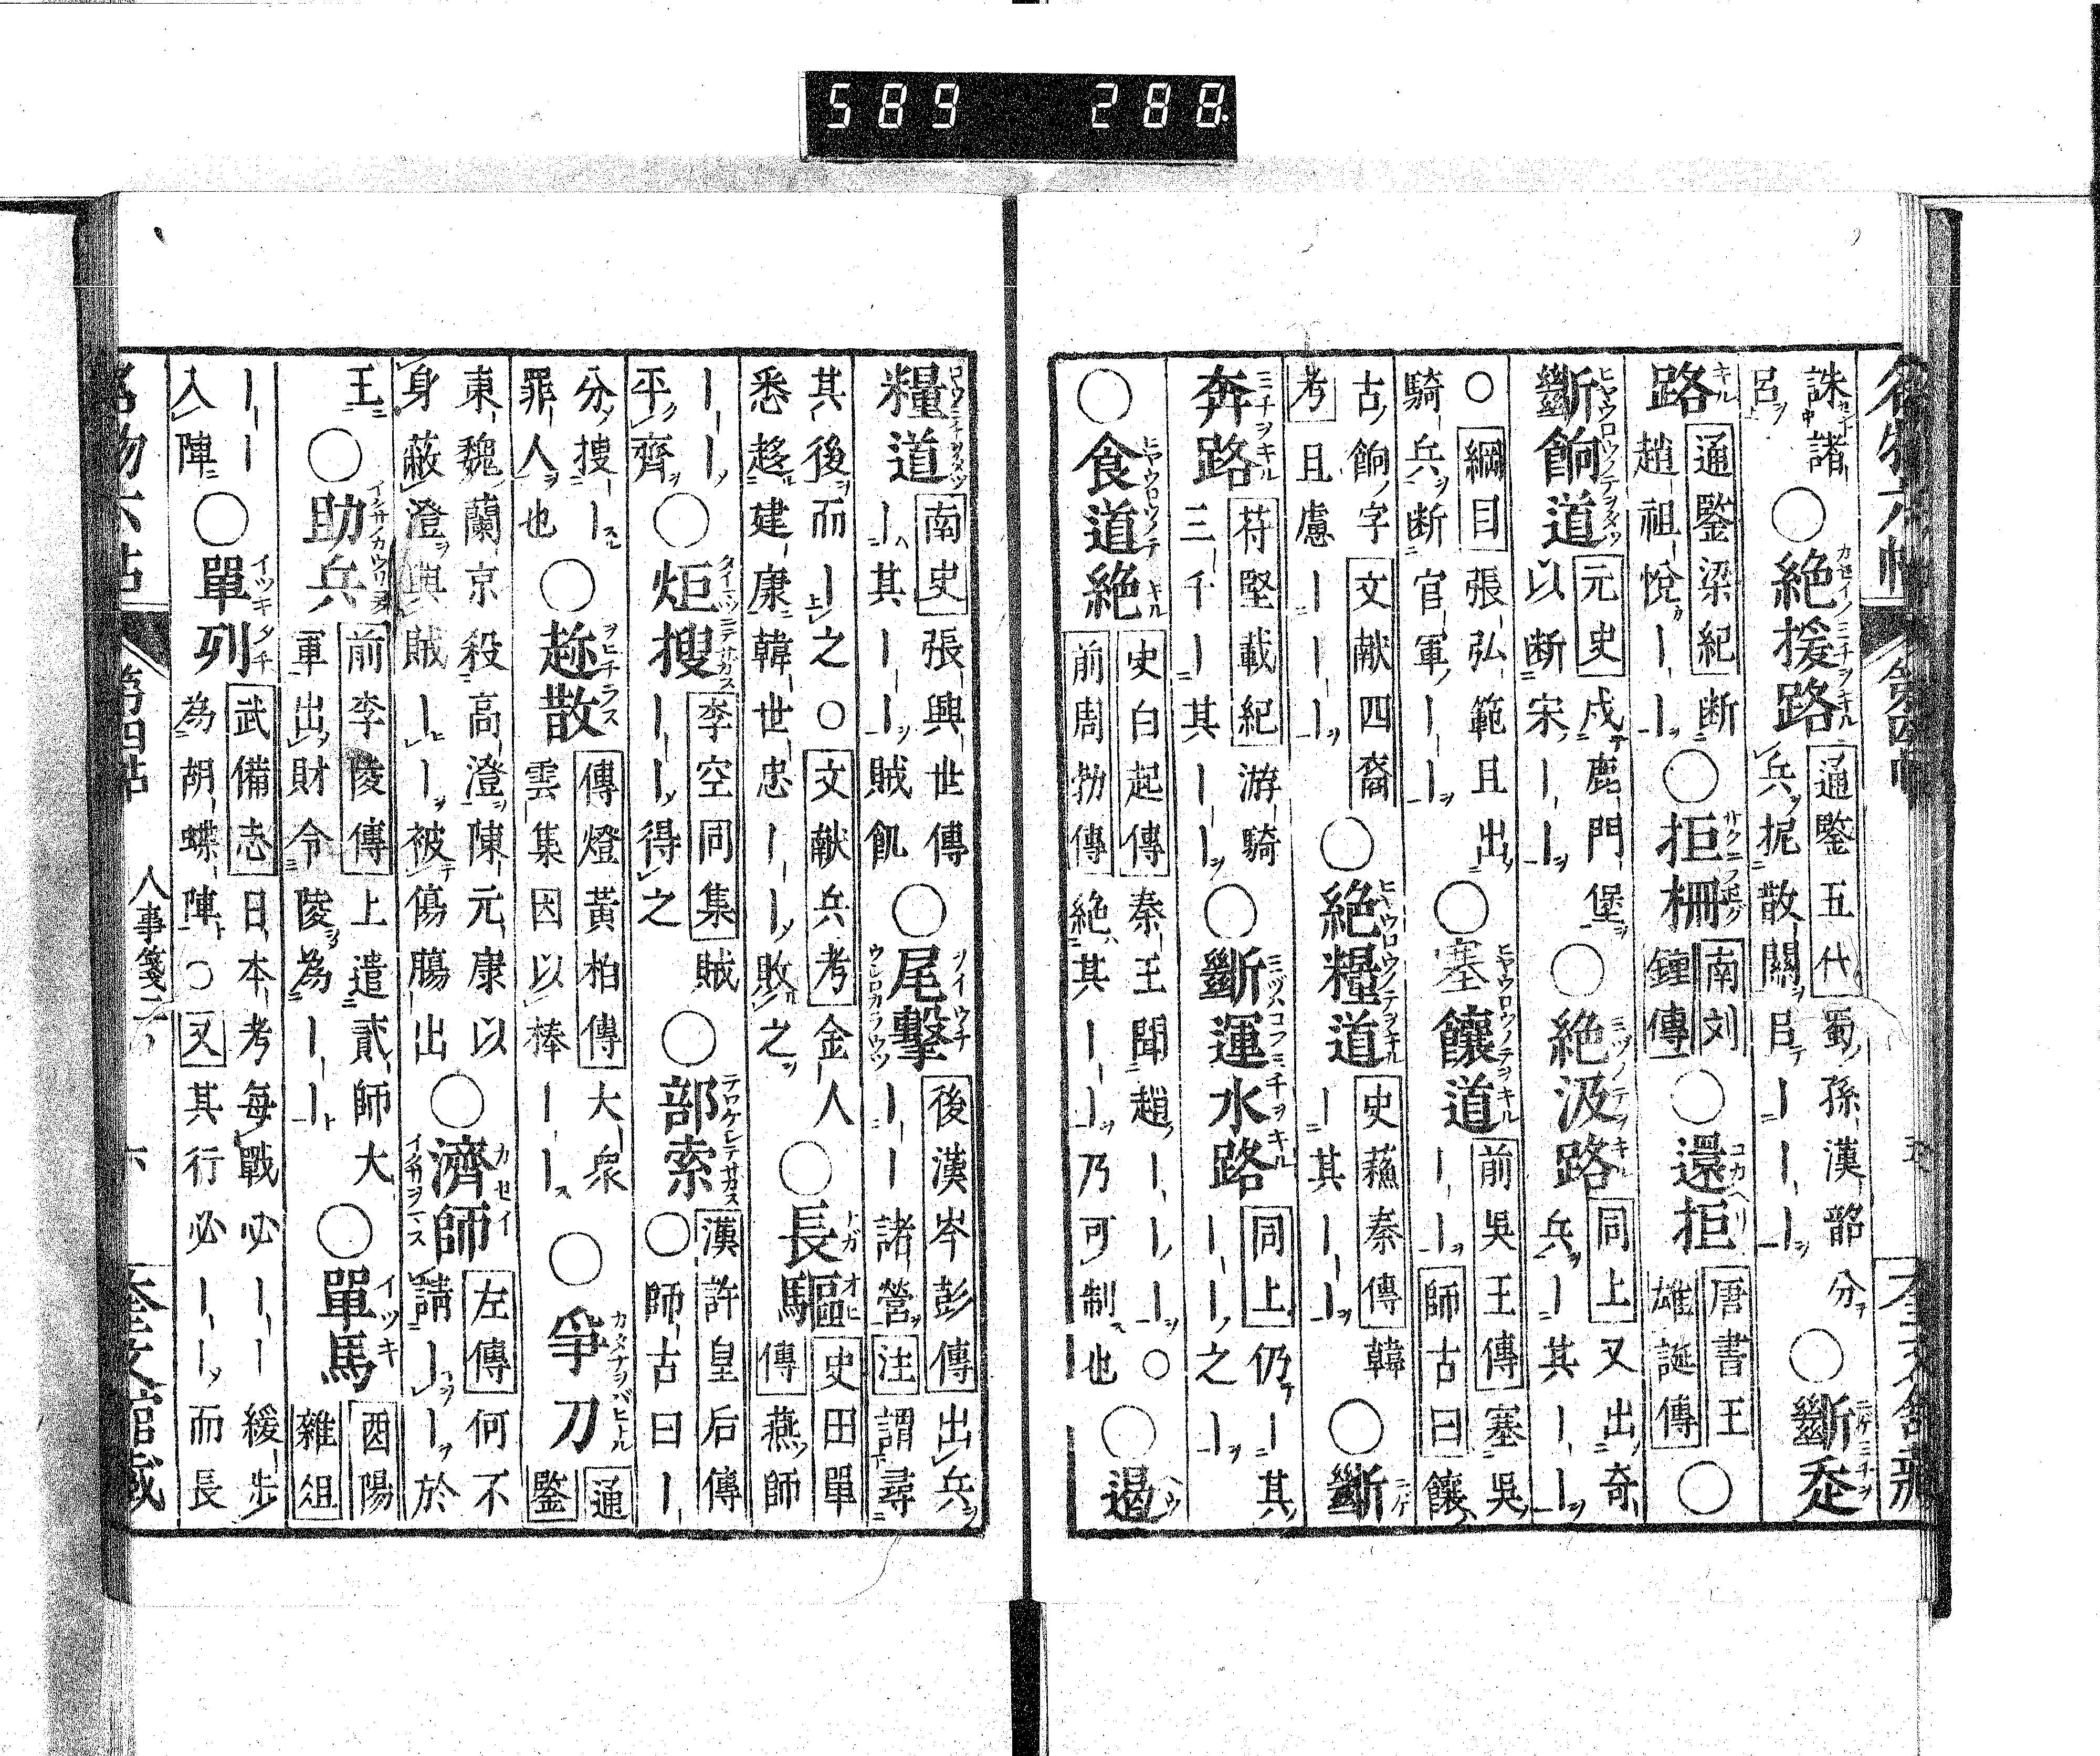 名物六帖 第四帖 五 奎文館藏
誅諸呂○絶援路 通鑒五代 蜀孫漢韶分兵扼散關㠯｜｜｜○斷
路 通鑒梁紀 断趙祖悅｜｜○拒柵 南刘鍾傳○還拒 唐書王雄誕傳○
斷餉道 元史 戍鹿門堡以断宋｜｜○絶汲路 同上 又出奇兵｜其｜｜
○綱目 張弘範且出騎兵断官軍｜｜○塞饟道 前吳王傳 塞吳｜｜師古曰饟
古餉字 文献四裔考 且慮｜｜｜○絶糧道 史蘓秦傳 韓｜其｜｜○斷
奔路 苻堅載紀 游騎三千｜其｜｜○斷運水路 同上 仍｜其｜｜之｜
○食道絶 史白起傳 秦王聞趙｜｜｜○前周勃傳 絶其｜｜乃可制也○遏
糧道 南史張興世傳 ｜其｜｜賊飢○尾擊 後漢岑彭傳 出兵｜｜諸營 注 謂尋
其後而｜之○文献兵考 金人悉趍建康韓世忠｜｜敗之○長驅 史田單傳 燕師
｜｜平齊○炬搜 李空同集 賊｜｜得之○部索 漢許皇后傳○師古曰｜
分搜｜｜罪人也○趂散 傳燈黃柏傳 大衆雲集因以棒｜｜○爭刀 通鑒
東魏蘭京殺高澄陳元康以身蔽澄與賊｜｜被傷膓出○濟師 左傳 何不請｜｜於
王○助兵 前李陵傳 上遣貳師大軍出財令陵為｜｜○單馬 酉陽雜俎
｜｜入陣○單列 武備志 日本考每戰必｜｜緩步為胡蝶陣○又其行必｜｜而長
名物六帖 第四帖 人事箋二 六 奎文館藏
589 288